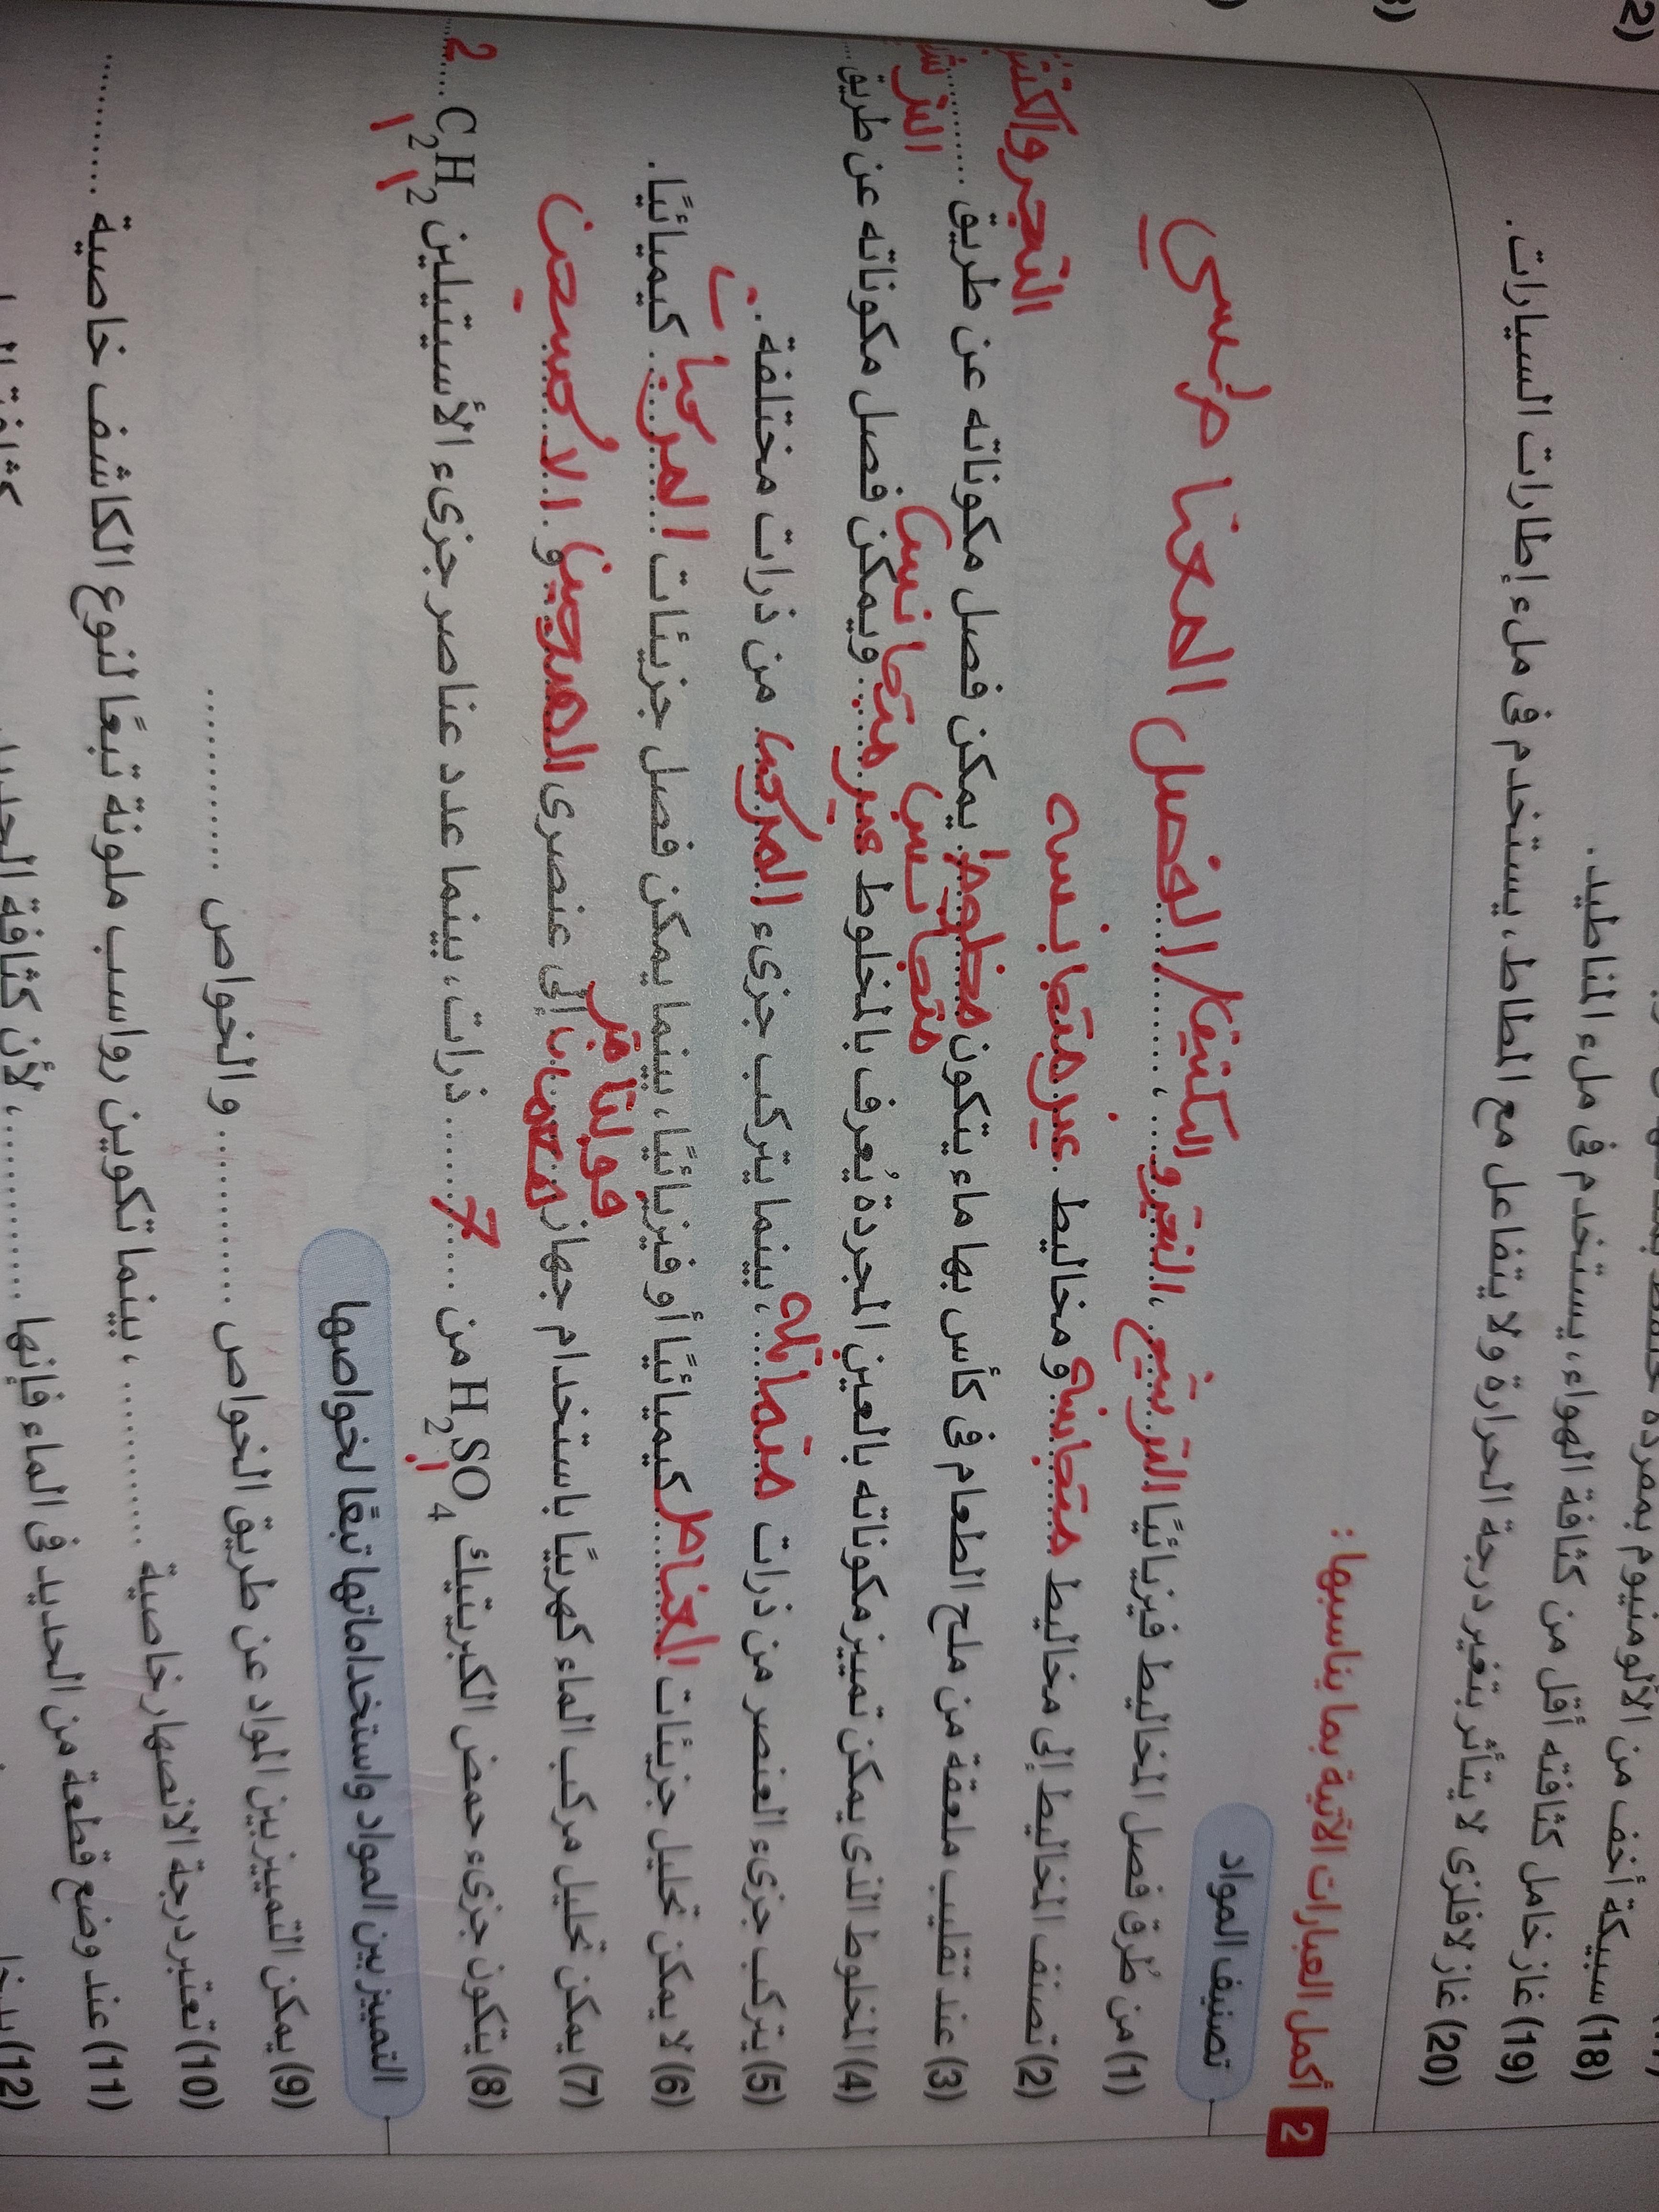 (18) سبيكة أخف من الألومنيوم بمفرده
(19) غاز خامل كثافته أقل من كثافة الهواء، يستخدم فى ملء المناطيد.
(20) غاز لافلزى لا يتأثر بتغير درجة الحرارة ولا يتفاعل مع المطاط، يستخدم فى ملء إطارات السيارات.
2 أكمل العبارات الآتية بما يناسبها :
تصنيف المواد
(1) من طُرق فصل المخاليط فيزيائيًا الترشيح، التبخر والتكثيف/الفصل المغناطيسي
(2) تصنف المخاليط إلى مخاليط متجانسه ومخاليط غير متجانسه
(3) عند تقليب ملعقة من ملح الطعام فى كأس بها ماء يتكون مخلوط متجانس يمكن فصل مكوناته عن طريق التبخر والتكثيف
(4) المخلوط الذى يمكن تمييز مكوناته بالعين المجردة يُعرف بالمخلوط غير متجانس ويمكن فصل مكوناته عن طريق
(5) يتركب جزىء العنصر من ذرات متماثله، بينما يتركب جزىء المركب من ذرات مختلفة.
(6) لا يمكن تحليل جزيئات العناصر كيميائيًا أو فيزيائيًا، بينما يمكن فصل جزيئات المركبات كيميائيًا.
(7) يمكن تحليل مركب الماء كهربيًا باستخدام جهاز فولتامتر هوفمان إلى عنصرى الهيدروجين و الاكسجين
(8) يتكون جزىء حمض الكبريتيك H2SO4 من 7 ذرات، بينما عدد عناصر جزىء الأسيتيلين C2H2 2
التمييز بين المواد واستخداماتها تبعًا لخواصها
(9) يمكن التمييز بين المواد عن طريق الخواص .......... والخواص ..........
(10) تعتبر درجة الانصهار خاصية .......... ، بينما تكوين رواسب ملونة تبعًا لنوع الكاشف خاصية ..........
(11) عند وضع قطعة من الحديد فى الماء فإنها .......... ، لأن كثافة الحديد
(12)